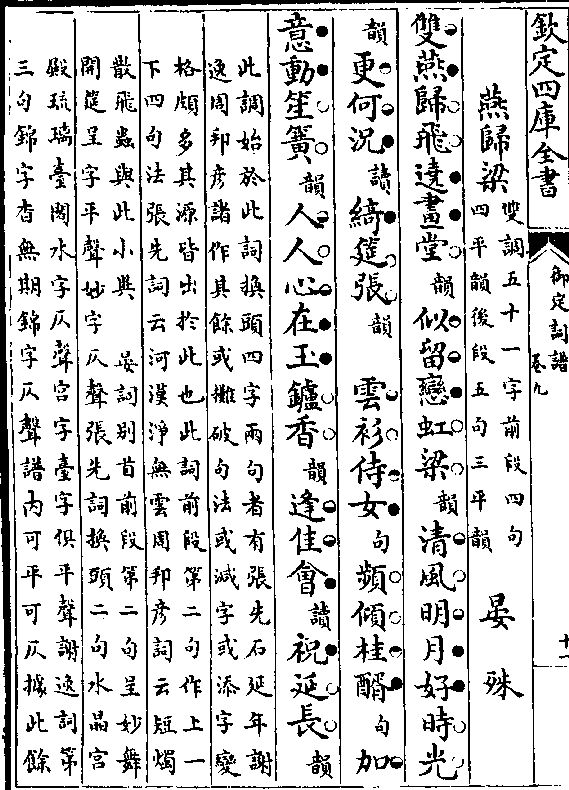 欽定四庫全書
御定詞譜
卷九
十一
燕歸梁
雙調五十一字前段四句
四平韻後段五句三平韻
晏殊
雙燕歸飛遶畫堂韻似留戀虹梁韻清風明月好時光
韻更何況讀綺筵張韻 雲衫侍女句頻傾桂醑句加
意動笙簧韻人人心在玉鑪香韻逢佳會讀祝延長韻
此調始於此詞換頭四字兩句者有張先石延年謝
逸周邦彥諸作其餘或攤破句法或減字或添字變
格頗多其源皆出於此也此詞前段第二句作上一
下四句法張先詞云河漢淨無雲周邦彥詞云短燭
散飛蟲與此小異 晏詞別首前段第二句呈妙舞
開筵呈字平聲妙字仄聲張先詞換頭二句水晶宮
殿琉璃臺閣水字仄聲宮字臺字俱平聲謝逸詞第
三句錦字杳無期錦字仄聲譜内可平可仄據此餘